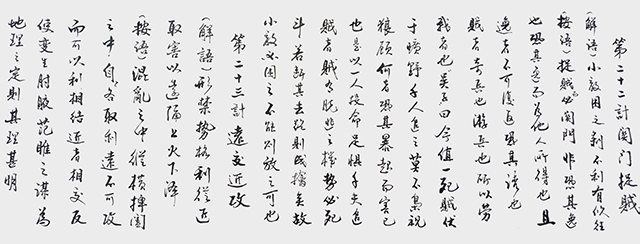 第二十二計關门捉贼
(解語)小敌困之剥不利有攸往
(按語)捉贼必關門非恐其逸
也恐其逸而為他人所得也且
逸者不可復追恐其誘也
贼者奇兵也游兵也所以劳
我者也吴子曰今值一死贼伏
于曠野千人追之莫不枭視
狼顾何者恐其暴起而害己
也是以一人投命足惧千夫追
贼者贼有脱逃之機势必死
斗若断其去路則成擒矣故
小敌必困之不能則放之可也
第二十三計遠交近攻
(解語)形禁势格利從近
取害以遠隔上火下泽
(按語)混亂之中縱横捭闔
之中自各取利遠不可攻
而可以利相结近者相交反
使变生肘腋范雎之谋為
地理之定則其理甚明